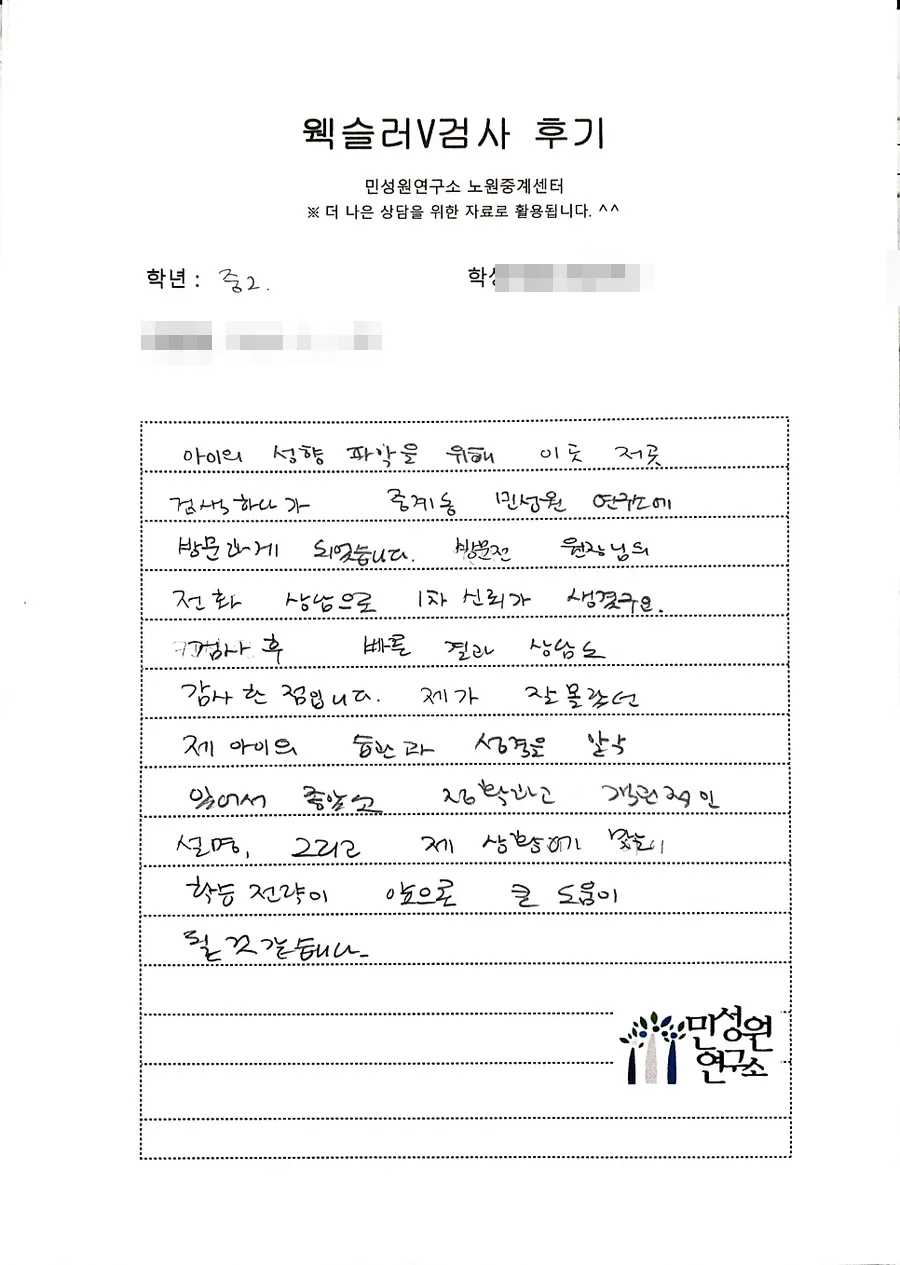 웩슬러V검사 후기
민성원연구소 노원중계센터
※ 더 나은 상담을 위한 자료로 활용됩니다. ^^
학년 : 중2.
아이의 성향 파악을 위해 이곳 저곳
검색하다가 중계동 민성원 연구소에
방문하게 되었습니다. 방문전 원장님의
전화 상담으로 1차 신뢰가 생겼구요.
검사 후 빠른 결과 상담도
감사한 점입니다. 제가 잘 몰랐던
제 아이의 습관과 성격을 알 수
있어서 좋았고 정확하고 객관적인
설명, 그리고 제 상황에 맞는
학습 전략이 앞으로 큰 도움이
될 것 같습니다.
민성원
연구소